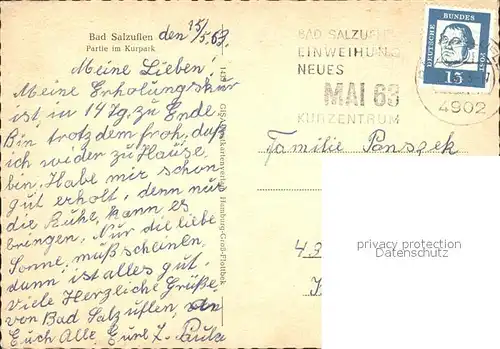 Bad Salzuflen
Partie im Kurpark
den 15/5.63.
Meine Lieben!
Meine Erholungskur
ist, in 14 Tg. zu Ende
Bin, trotzdem froh, daß
ich wider zu Hause,
bin, Habe mir schon
gut erholt, denn nur
die Ruhe, kann es
bringen. Nur die liebe
Sonne, muß scheinen,
dann, ist alles gut.
Viele Herzliche Grüße,
von Bad Salzuflen,
Euch Alle, Eure L. Paula
Postkartenverlag Hamburg-Groß-Flottbek
BAD SALZUFLEN
EINWEIHUNG
NEUES
MAI 63
KURZENTRUM
DEUTSCHE BUNDESPOST
15
4902
Familie Panszek
privacy protection
Datenschutz
4.3